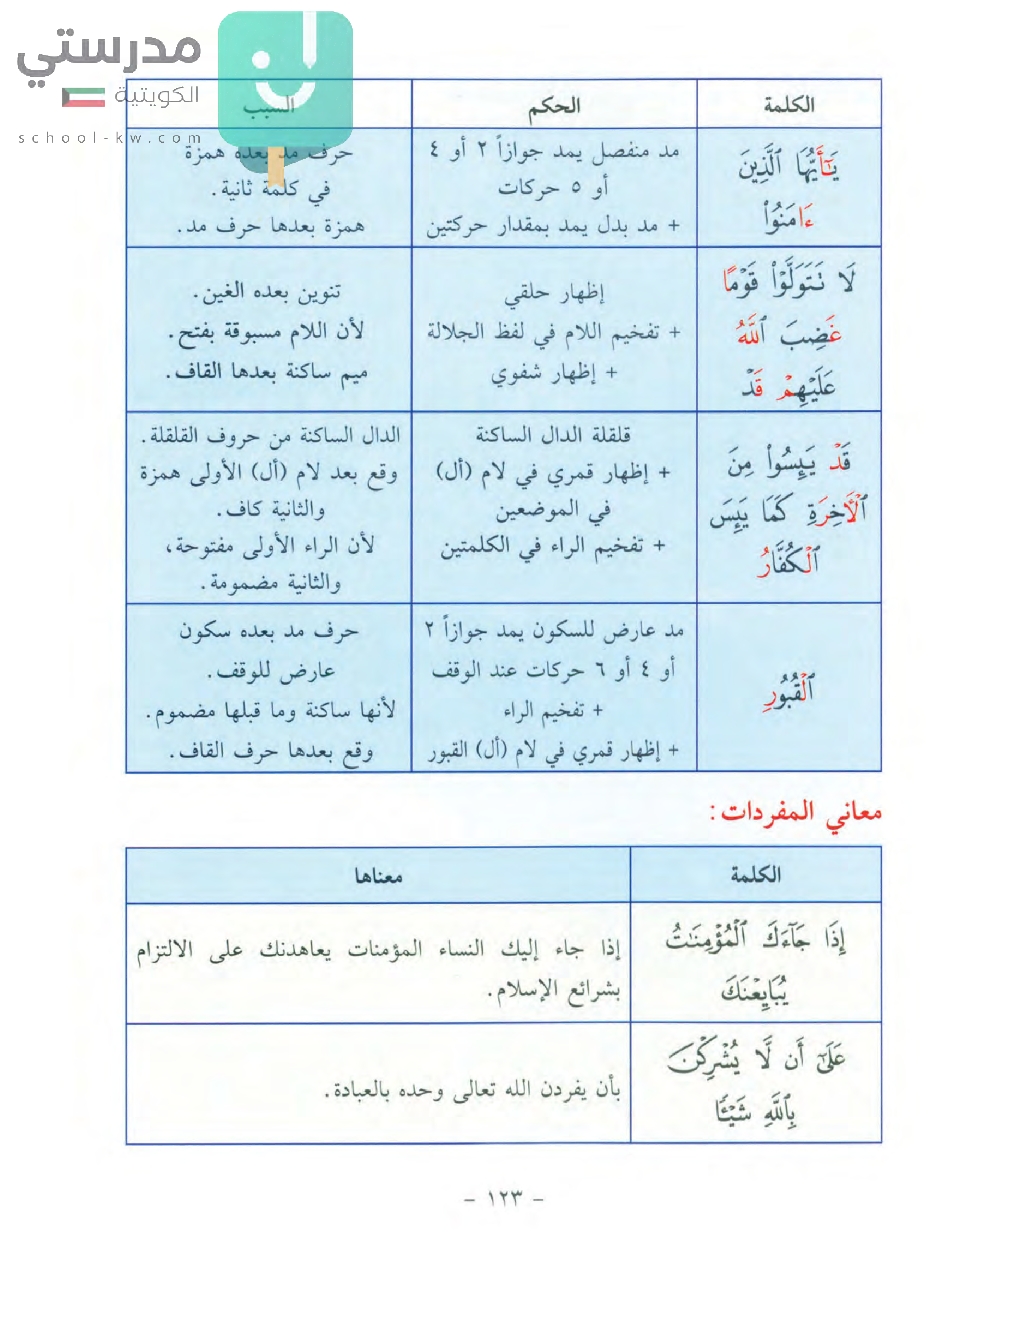 مدرستي
الكويتية
school-kw.com
الكلمة
الحكم
السبب
يَـٰٓأَيُّهَا ٱلَّذِينَ
ءَامَنُوا۟
مد منفصل يمد جوازاً ٢ أو ٤
أو ٥ حركات
+ مد بدل يمد بمقدار حركتين
حرف مد بعده همزة
في كلمة ثانية.
همزة بعدها حرف مد.
لَا تَتَوَلَّوْا۟ قَوْمًا
غَضِبَ ٱللَّهُ
عَلَيْهِمْ قَدْ
إظهار حلقي
+ تفخيم اللام في لفظ الجلالة
+ إظهار شفوي
تنوين بعده الغين.
لأن اللام مسبوقة بفتح.
ميم ساكنة بعدها القاف.
قَدْ يَئِسُوا۟ مِنَ
ٱلْأَخِرَةِ كَمَا يَئِسَ
ٱلْكُفَّارُ
قلقلة الدال الساكنة
+ إظهار قمري في لام (أل)
في الموضعين
+ تفخيم الراء في الكلمتين
الدال الساكنة من حروف القلقلة.
وقع بعد لام (أل) الأولى همزة
والثانية كاف.
لأن الراء الأولى مفتوحة،
والثانية مضمومة.
ٱلْقُبُورِ
مد عارض للسكون يمد جوازاً ٢
أو ٤ أو ٦ حركات عند الوقف
+ تفخيم الراء
+ إظهار قمري في لام (أل) القبور
حرف مد بعده سكون
عارض للوقف.
لأنها ساكنة وما قبلها مضموم.
وقع بعدها حرف القاف.
معاني المفردات:
الكلمة
معناها
إِذَا جَآءَكَ ٱلْمُؤْمِنَـٰتُ
يُبَايِعْنَكَ
إذا جاء إليك النساء المؤمنات يعاهدنك على الالتزام
بشرائع الإسلام.
عَلَىٰٓ أَن لَّا يُشْرِكْنَ
بِٱللَّهِ شَيْـًٔا
بأن يفردن الله تعالى وحده بالعبادة.
- ١٢٣ -